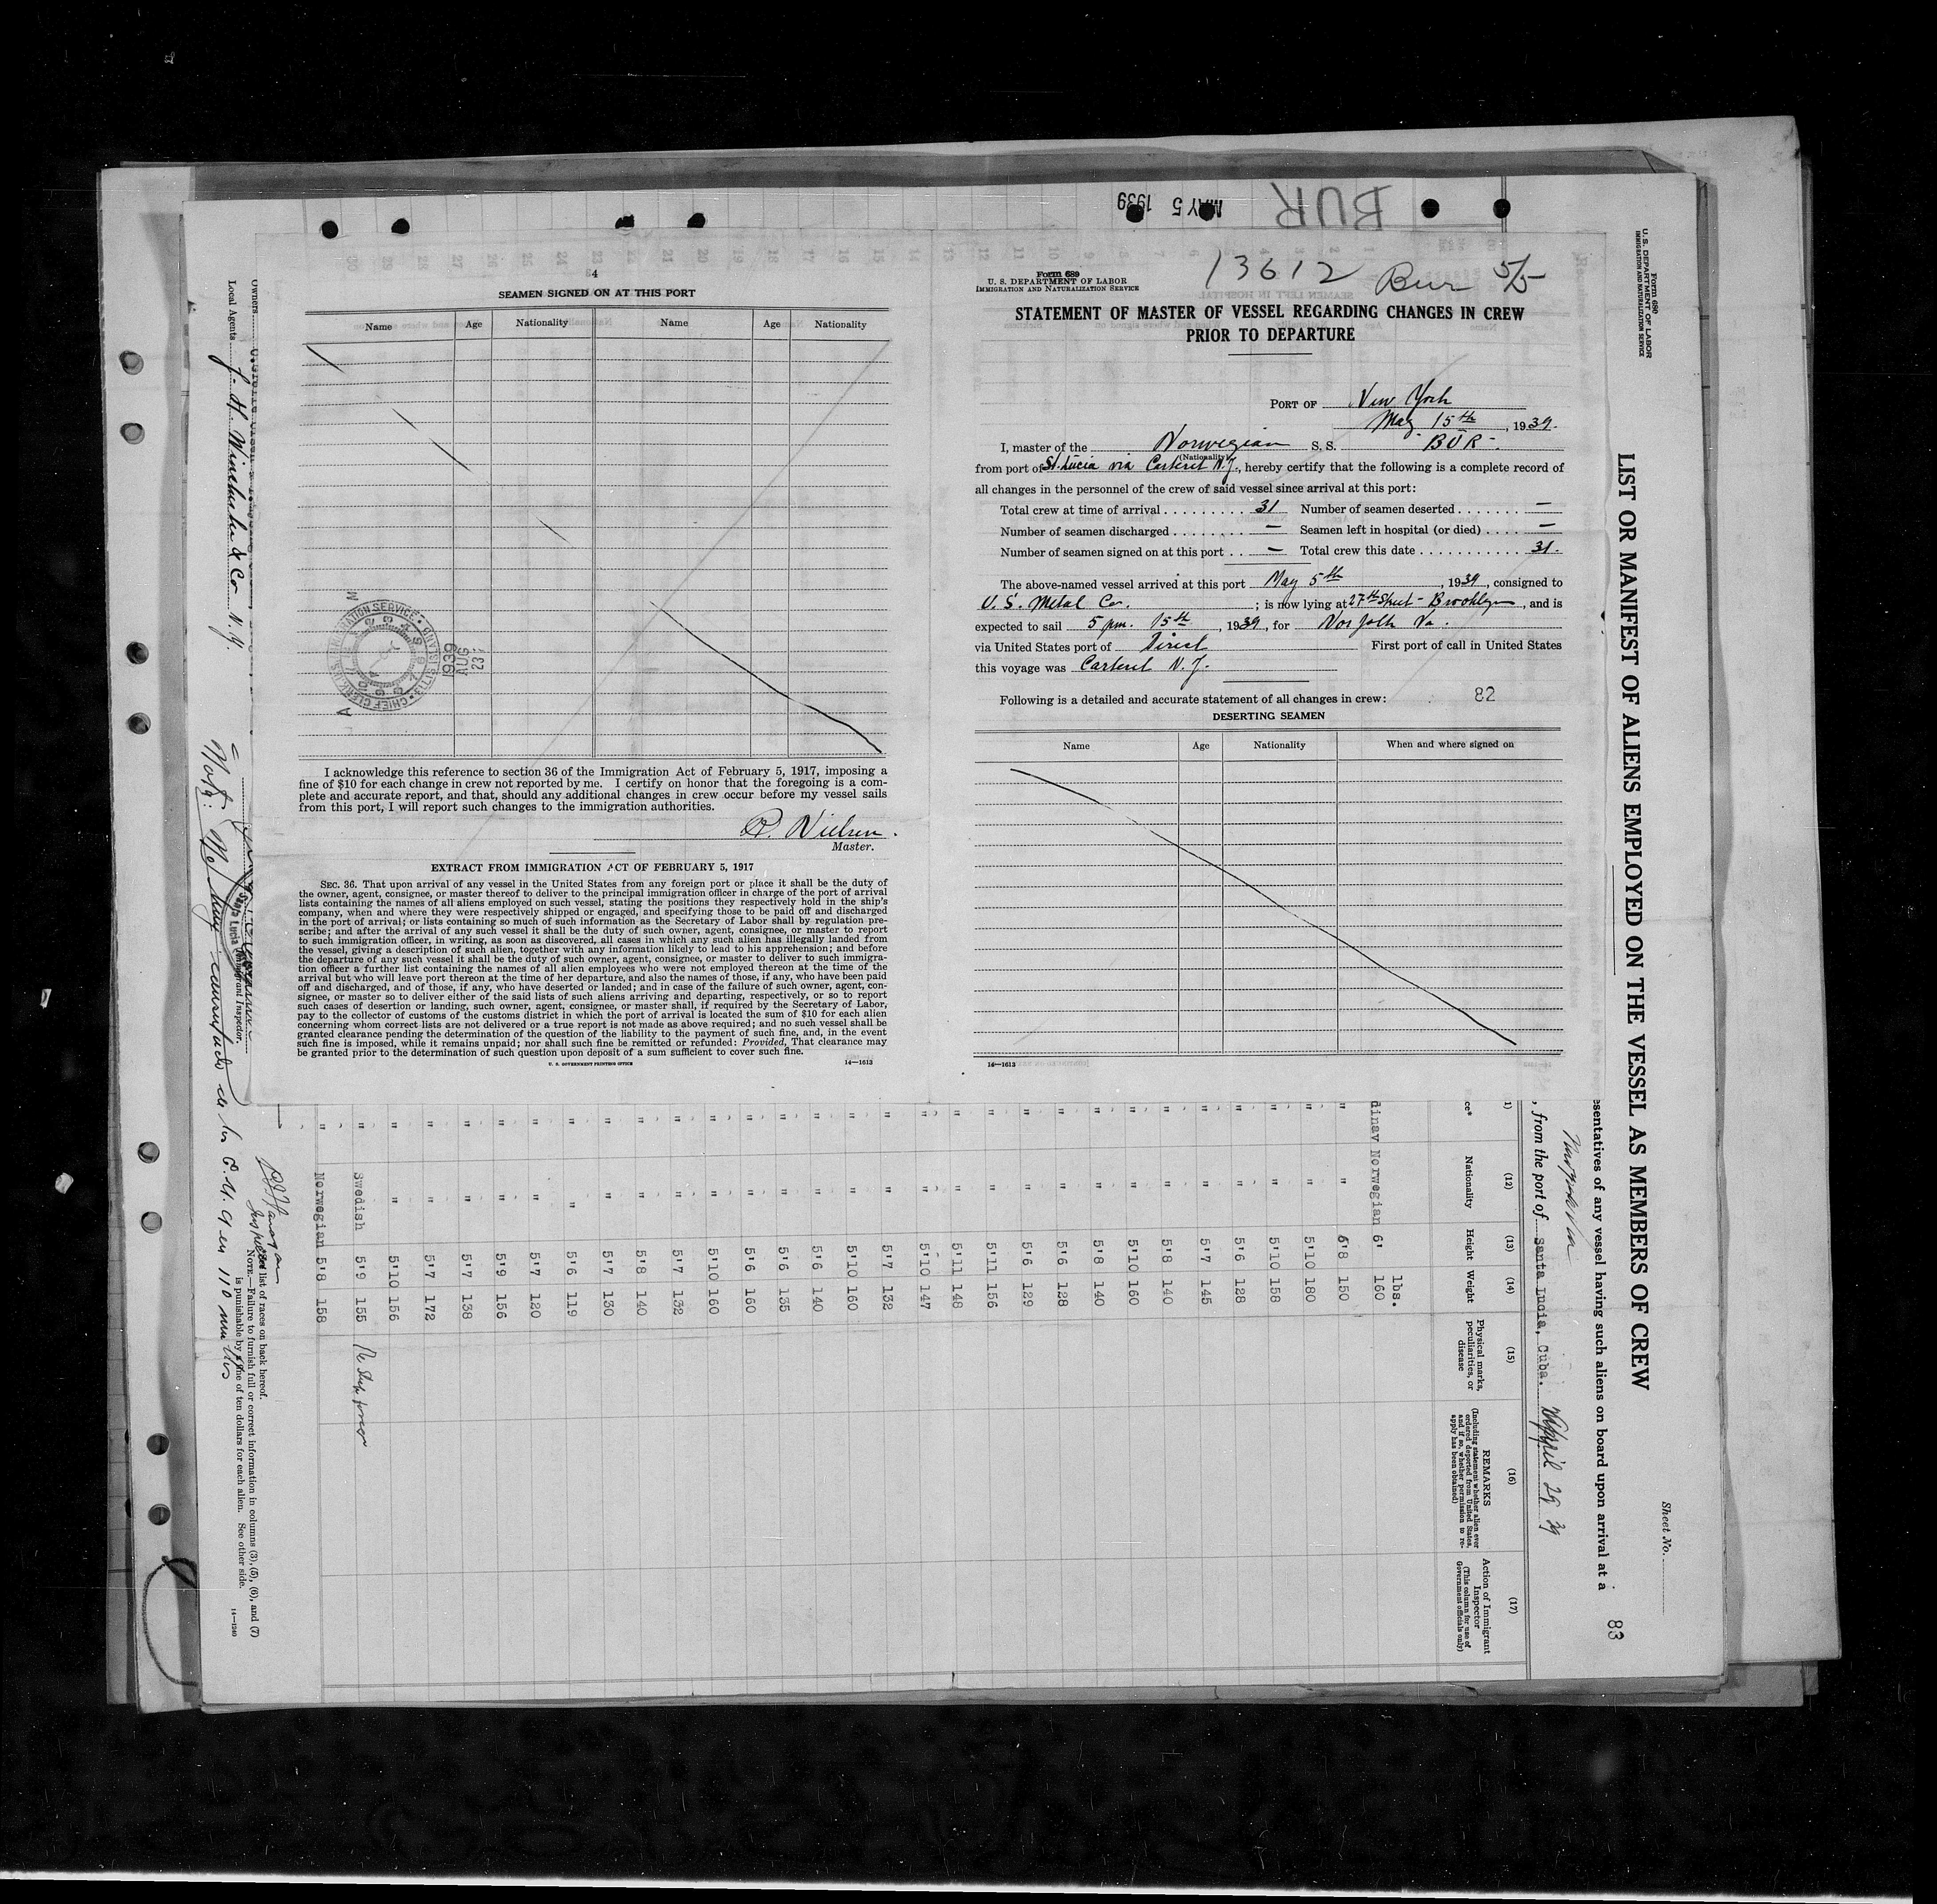 MAY 5 1939
BUR
4
SEAMEN SIGNED ON AT THIS PORT
Name Age Nationality Name Age Nationality
I acknowledge this reference to section 36 of the Immigration Act of February 5, 1917, imposing a
fine of $10 for each change in crew not reported by me. I certify on honor that the foregoing is a com-
plete and accurate report, and that, should any additional changes in crew occur before my vessel sails
from this port, I will report such changes to the immigration authorities.
R. Nielsen.
Master.
EXTRACT FROM IMMIGRATION ACT OF FEBRUARY 5, 1917
SEC. 36. That upon arrival of any vessel in the United States from any foreign port or place it shall be the duty of
the owner, agent, consignee, or master thereof to deliver to the principal immigration officer in charge of the port of arrival
lists containing the names of all aliens employed on such vessel, stating the positions they respectively hold in the ship's
company, when and where they were respectively shipped or engaged, and specifying those to be paid off and discharged
in the port of arrival; or lists containing so much of such information as the Secretary of Labor shall by regulation pre-
scribe; and after the arrival of any such vessel it shall be the duty of such owner, agent, consignee, or master to report
to such immigration officer, in writing, as soon as discovered, all cases in which any such alien has illegally landed from
the vessel, giving a description of such alien, together with any information likely to lead to his apprehension; and before
the departure of any such vessel it shall be the duty of such owner, agent, consignee, or master to deliver to such immigra-
tion officer a further list containing the names of all alien employees who were not employed thereon at the time of the
arrival but who will leave port thereon at the time of her departure, and also the names of those, if any, who have been paid
off and discharged, and of those, if any, who have deserted or landed; and in case of the failure of such owner, agent, con-
signee, or master so to deliver either of the said lists of such aliens arriving and departing, respectively, or so to report
such cases of desertion or landing, such owner, agent, consignee, or master shall, if required by the Secretary of Labor,
pay to the collector of customs of the customs district in which the port of arrival is located the sum of $10 for each alien
concerning whom correct lists are not delivered or a true report is not made as above required; and no such vessel shall be
granted clearance pending the determination of the question of the liability to the payment of such fine, and, in the event
such fine is imposed, while it remains unpaid; nor shall such fine be remitted or refunded: Provided, That clearance may
be granted prior to the determination of such question upon deposit of a sum sufficient to cover such fine.
U. S. GOVERNMENT PRINTING OFFICE 14—1613
CHIEF CLERK U.S. IMMIGRATION SERVICE ELLIS ISLAND
1939
AUG
23
Form 689
U. S. DEPARTMENT OF LABOR
IMMIGRATION AND NATURALIZATION SERVICE
13612 Bur 5/5
STATEMENT OF MASTER OF VESSEL REGARDING CHANGES IN CREW
PRIOR TO DEPARTURE
PORT OF New York
May 15th, 1939.
I, master of the Norwegian S. S. "BUR".
(Nationality)
from port of St. Lucia via Carteret N.J., hereby certify that the following is a complete record of
all changes in the personnel of the crew of said vessel since arrival at this port:
Total crew at time of arrival ......... 31 Number of seamen deserted ....... —
Number of seamen discharged ........ — Seamen left in hospital (or died) .... —
Number of seamen signed on at this port .. — Total crew this date ........... 31.
The above-named vessel arrived at this port May 5th, 1939, consigned to
U. S. Metal Co. ; is now lying at 27th Street - Brooklyn, and is
expected to sail 5 pm. 15th, 1939, for Norfolk Va.
via United States port of Direct First port of call in United States
this voyage was Carteret N. J.
Following is a detailed and accurate statement of all changes in crew: 82
DESERTING SEAMEN
Name Age Nationality When and where signed on
14—1613
Form 680
U. S. DEPARTMENT OF LABOR
IMMIGRATION AND NATURALIZATION SERVICE
Sheet No.
LIST OR MANIFEST OF ALIENS EMPLOYED ON THE VESSEL AS MEMBERS OF CREW
83
esentatives of any vessel having such aliens on board upon arrival at a
, from the port of Santa Lucia, Cuba. April 29 39
(12) (13) (14) (15) (16) (17)
Nationality Height Weight Physical marks, peculiarities, or disease
REMARKS
(Including statement whether alien ever ordered deported from United States, and if so, whether permission to reapply has been obtained)
Action of Immigrant Inspector
(This column for use of Government officials only)
lbs.
dinav Norwegian 6' 160
" " 5'8 150
" " 5'10 180
" " 5'10 158
" " 5'6 128
" " 5'7 145
" " 5'8 140
" " 5'10 160
" " 5'8 140
" " 5'6 128
" " 5'6 129
" " 5'11 156
" " 5'11 148
" " 5'10 147
" " 5'7 132
" " 5'10 160
" " 5'6 140
" " 5'6 135
" " 5'6 160
" " 5'10 160
" " 5'7 132
" " 5'8 140
" " 5'7 130
" " 5'6 119
" " 5'7 120
" " 5'9 156
" " 5'7 138
" " 5'7 172
" " 5'10 156
" Swedish 5'9 155
" Norwegian 5'8 158
list of races on back hereof.
NOTE.—Failure to furnish full or correct information in columns (3), (5), (6), and (7)
is punishable by a fine of ten dollars for each alien. See other side.
14—1240
Santa Lucia Immigrant Inspector.
Owners
Local Agents J. H. Winchester & Co N. Y.